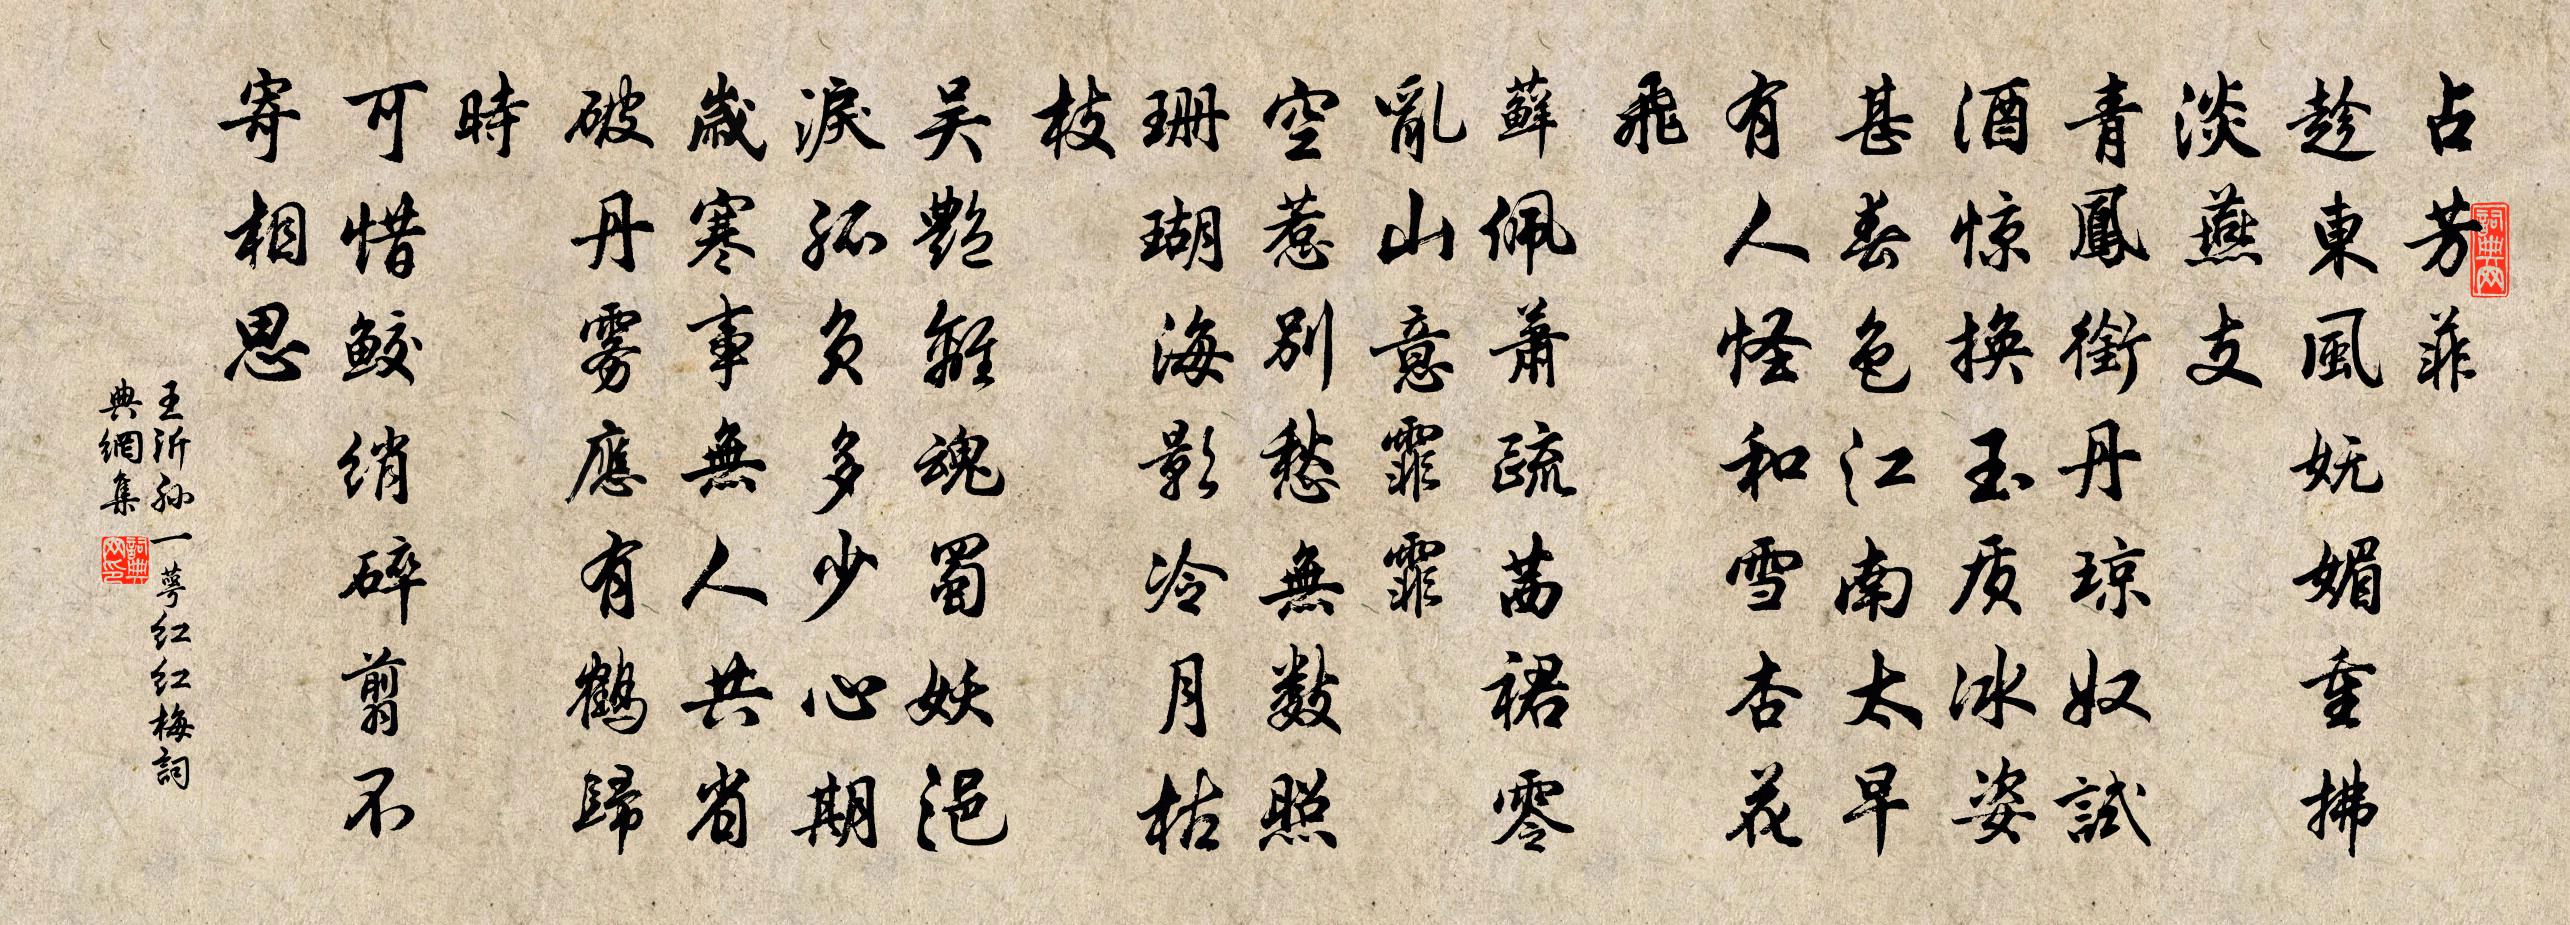 占芳菲
趁東風妩媚重拂
淡燕支
青鳳銜丹琼奴試
酒惊换玉质冰姿
甚春色江南太早
有人怪和雪杏花
飛
蘚佩萧疏茜裙零
亂山意霏霏
空惹别愁無数照
珊瑚海影冷月枯
枝
吴艷離魂蜀妖浥
淚孤负多少心期
歲寒事無人共省
破丹雾應有鶴歸
時
可惜鲛绡碎剪不
寄相思
王沂孙一萼红红梅詞
典網集
詞典网
詞典网印